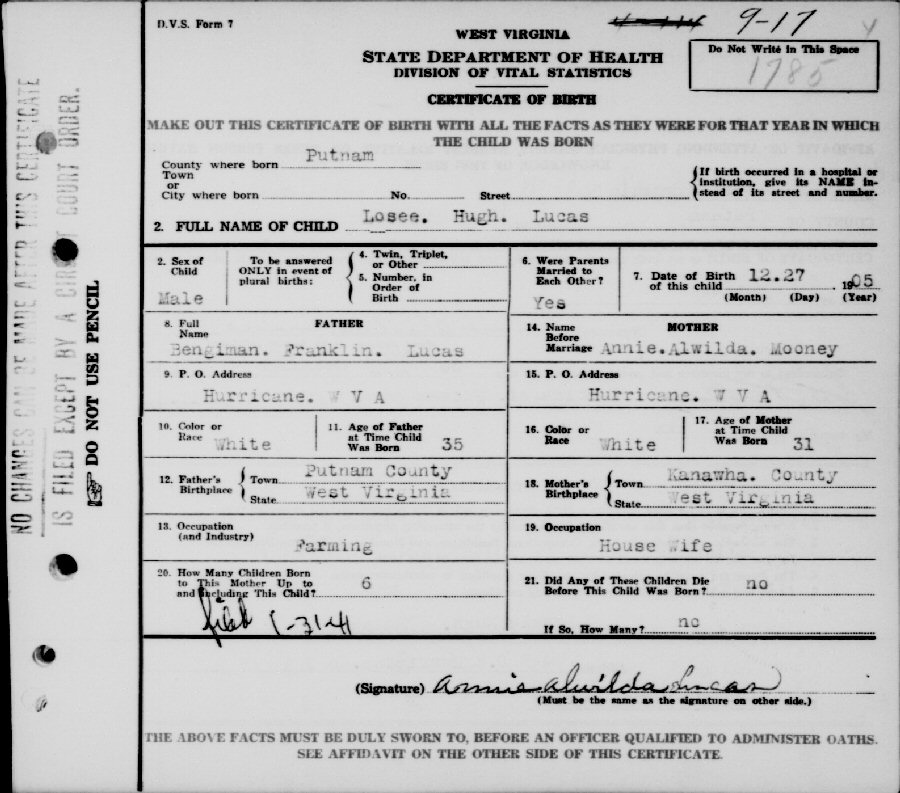 D.V.S. Form 7
9-17
WEST VIRGINIA
STATE DEPARTMENT OF HEALTH
DIVISION OF VITAL STATISTICS
Do Not Write in This Space
1785
CERTIFICATE OF BIRTH
MAKE OUT THIS CERTIFICATE OF BIRTH WITH ALL THE FACTS AS THEY WERE FOR THAT YEAR IN WHICH
THE CHILD WAS BORN
County where born Putnam
Town
or
City where born No. Street
If birth occurred in a hospital or
institution, give its NAME in-
stead of its street and number.
2. FULL NAME OF CHILD Losee. Hugh. Lucas
2. Sex of
Child
Male
To be answered
ONLY in event of
plural births:
4. Twin, Triplet,
or Other
5. Number, in
Order of
Birth
6. Were Parents
Married to
Each Other?
Yes
7. Date of Birth 12.27 1905
of this child (Month) (Day) (Year)
8. Full
Name
FATHER
Bengiman. Franklin. Lucas
14. Name
Before
Marriage
MOTHER
Annie.Alwilda. Mooney
9. P. O. Address
Hurricane. W V A
15. P. O. Address
Hurricane. W V A
10. Color or
Race White
11. Age of Father
at Time Child
Was Born 35
16. Color or
Race White
17. Age of Mother
at Time Child
Was Born 31
12. Father's
Birthplace
Town Putnam County
State West Virginia
18. Mother's
Birthplace
Town Kanawha. County
State West Virginia
13. Occupation
(and Industry)
Farming
19. Occupation
House Wife
20. How Many Children Born
to This Mother Up to
and Including This Child? 6
21. Did Any of These Children Die
Before This Child Was Born? no
If So, How Many? no
filed 1-31-41
(Signature) Annie Alwilda Lucas
(Must be the same as the signature on other side.)
THE ABOVE FACTS MUST BE DULY SWORN TO, BEFORE AN OFFICER QUALIFIED TO ADMINISTER OATHS.
SEE AFFIDAVIT ON THE OTHER SIDE OF THIS CERTIFICATE.
NO CHANGES CAN BE MADE AFTER THIS CERTIFICATE
IS FILED EXCEPT BY A CIRCUIT COURT ORDER.
DO NOT USE PENCIL